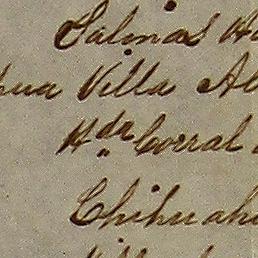 Salinas
hua Villa
Hda Corral
Chihuahu